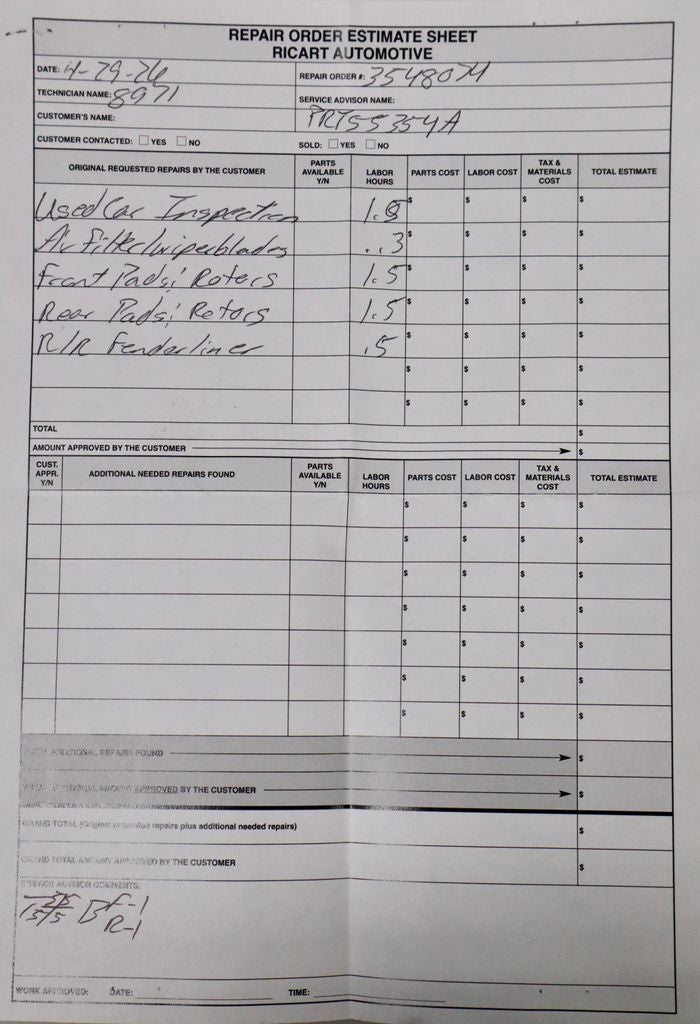 REPAIR ORDER ESTIMATE SHEET
RICART AUTOMOTIVE
DATE: 4-29-26 REPAIR ORDER #: 3548074
TECHNICIAN NAME: 8971 SERVICE ADVISOR NAME:
CUSTOMER'S NAME: PRT55354A
CUSTOMER CONTACTED: YES NO SOLD: YES NO
ORIGINAL REQUESTED REPAIRS BY THE CUSTOMER PARTS AVAILABLE Y/N LABOR HOURS PARTS COST LABOR COST TAX & MATERIALS COST TOTAL ESTIMATE
Used Car Inspection $ $ $ $
Air Filter/wiperblades .3 $ $ $ $
Front Pads; Roters 1.5 $ $ $ $
Rear Pads; Rotors 1.5 $ $ $ $
R/R Fenderliner .5 $ $ $ $
$ $ $ $
$ $ $ $
TOTAL $
AMOUNT APPROVED BY THE CUSTOMER $
CUST. APPR. Y/N ADDITIONAL NEEDED REPAIRS FOUND PARTS AVAILABLE Y/N LABOR HOURS PARTS COST LABOR COST TAX & MATERIALS COST TOTAL ESTIMATE
$ $ $ $
$ $ $ $
$ $ $ $
$ $ $ $
$ $ $ $
$ $ $ $
$ $ $ $
ADDITIONAL REPAIRS FOUND $
AMOUNT APPROVED BY THE CUSTOMER $
GRAND TOTAL (Original requested repairs plus additional needed repairs) $
GRAND TOTAL AMOUNT APPROVED BY THE CUSTOMER $
SERVICE ADVISOR COMMENTS:
B F-1
R-1
WORK APPROVED: DATE: TIME: